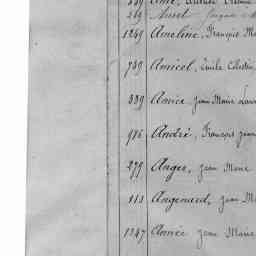 269 Auret
1249 Ameline, François Ma
789 Amicel, Emile Célestin
889 Amice, Jean Marie Laur
986 André, François Jean
279 Anger, Jean Marie
113 Angenard, Jean M
1247 Année Jean Marie